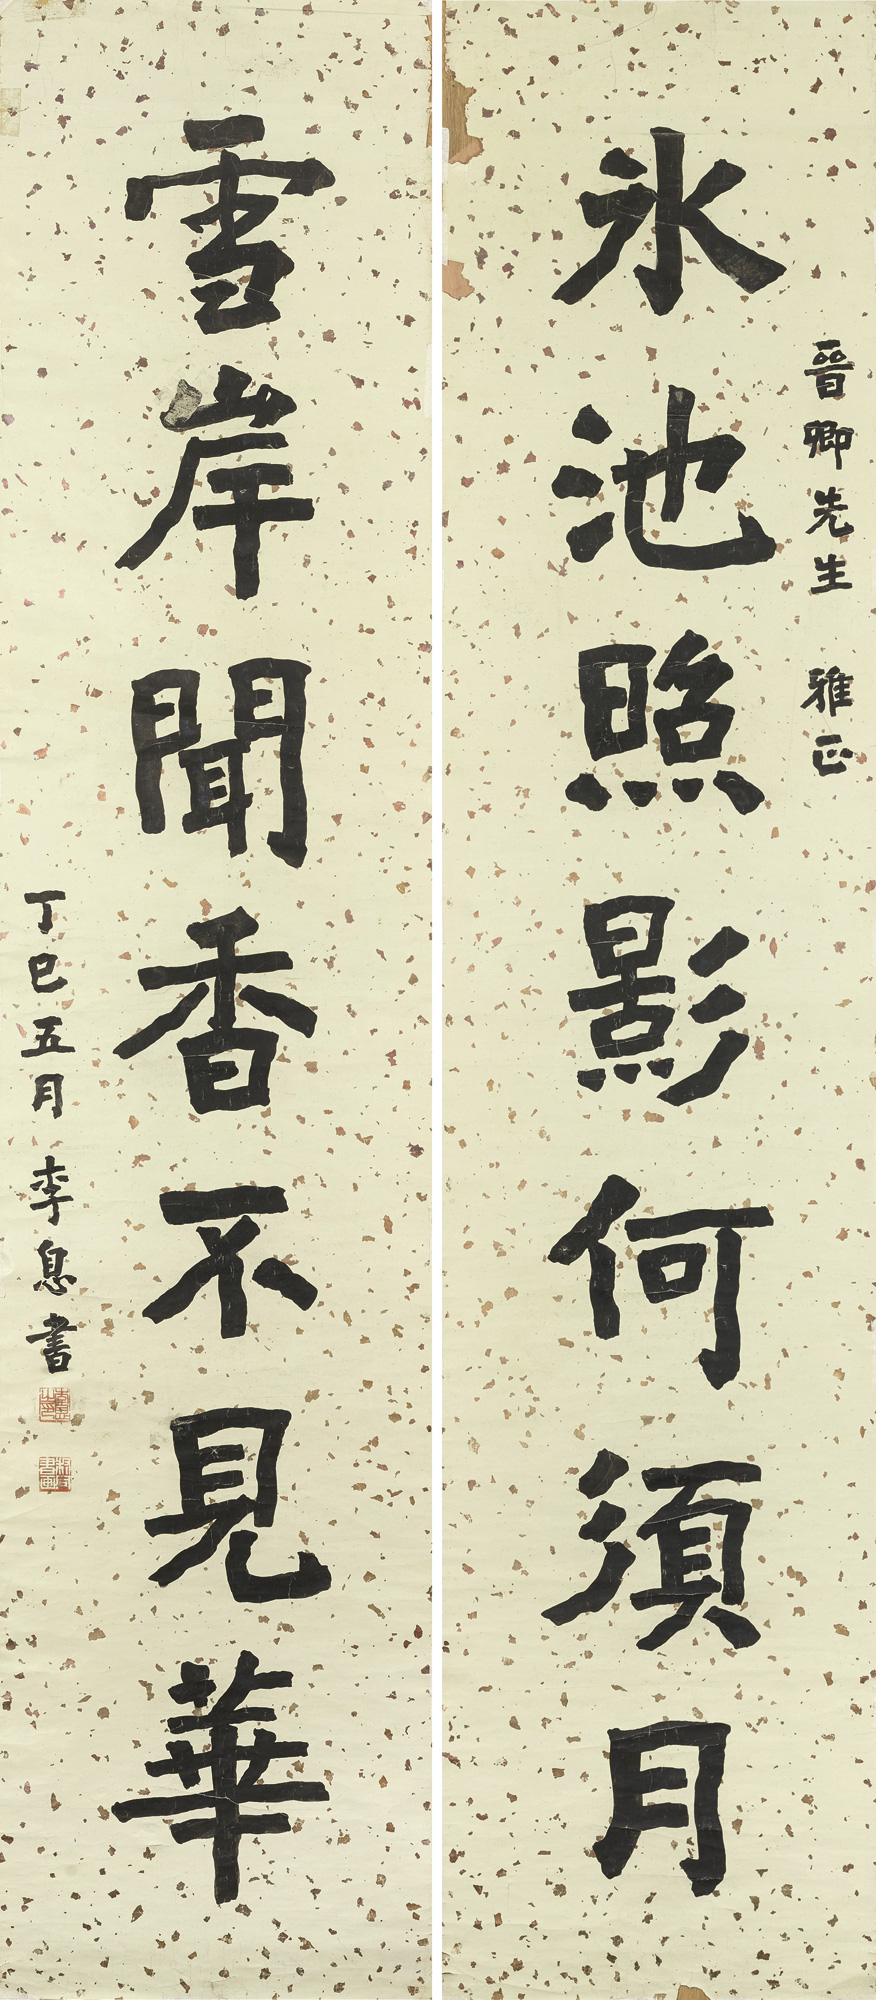 晉卿先生 雅正
氷池照影何須月
雪岸聞香不見華
丁巳五月 李息書